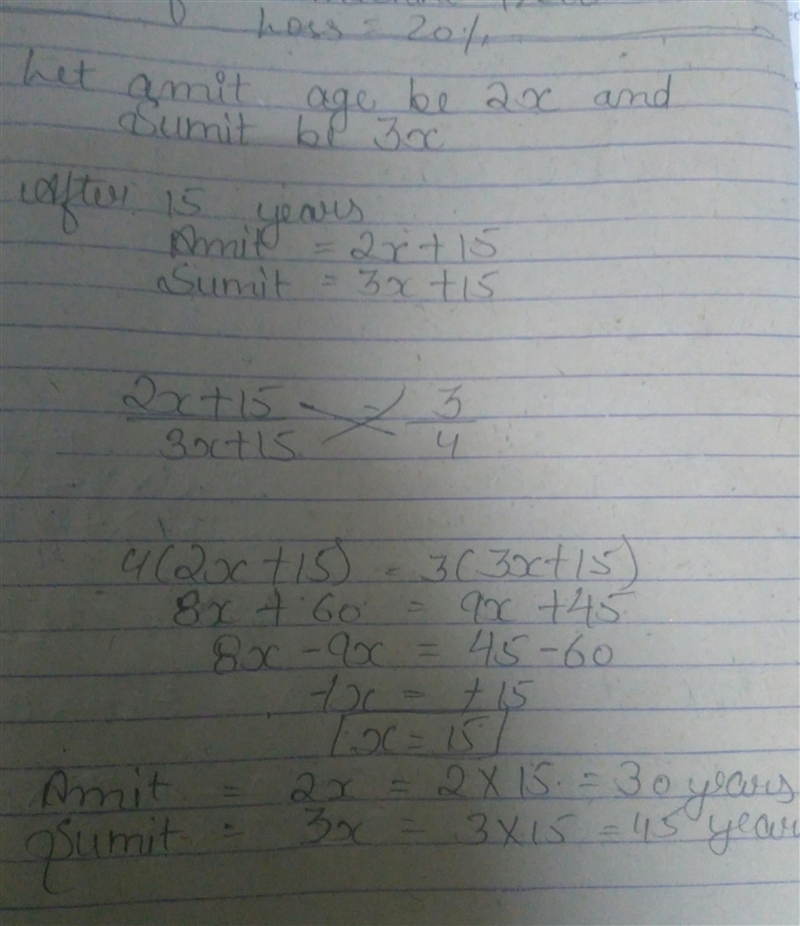 Loss = 20%
Let Amit age be 2x and
Sumit be 3x
After 15 years
Amit = 2x + 15
Sumit = 3x + 15
2x + 15 = 3
3x + 15 4
4(2x + 15) = 3(3x + 15)
8x + 60 = 9x + 45
8x - 9x = 45 - 60
+x = +15
x = 15
Amit = 2x = 2 × 15 = 30 years
Sumit = 3x = 3 × 15 = 45 year